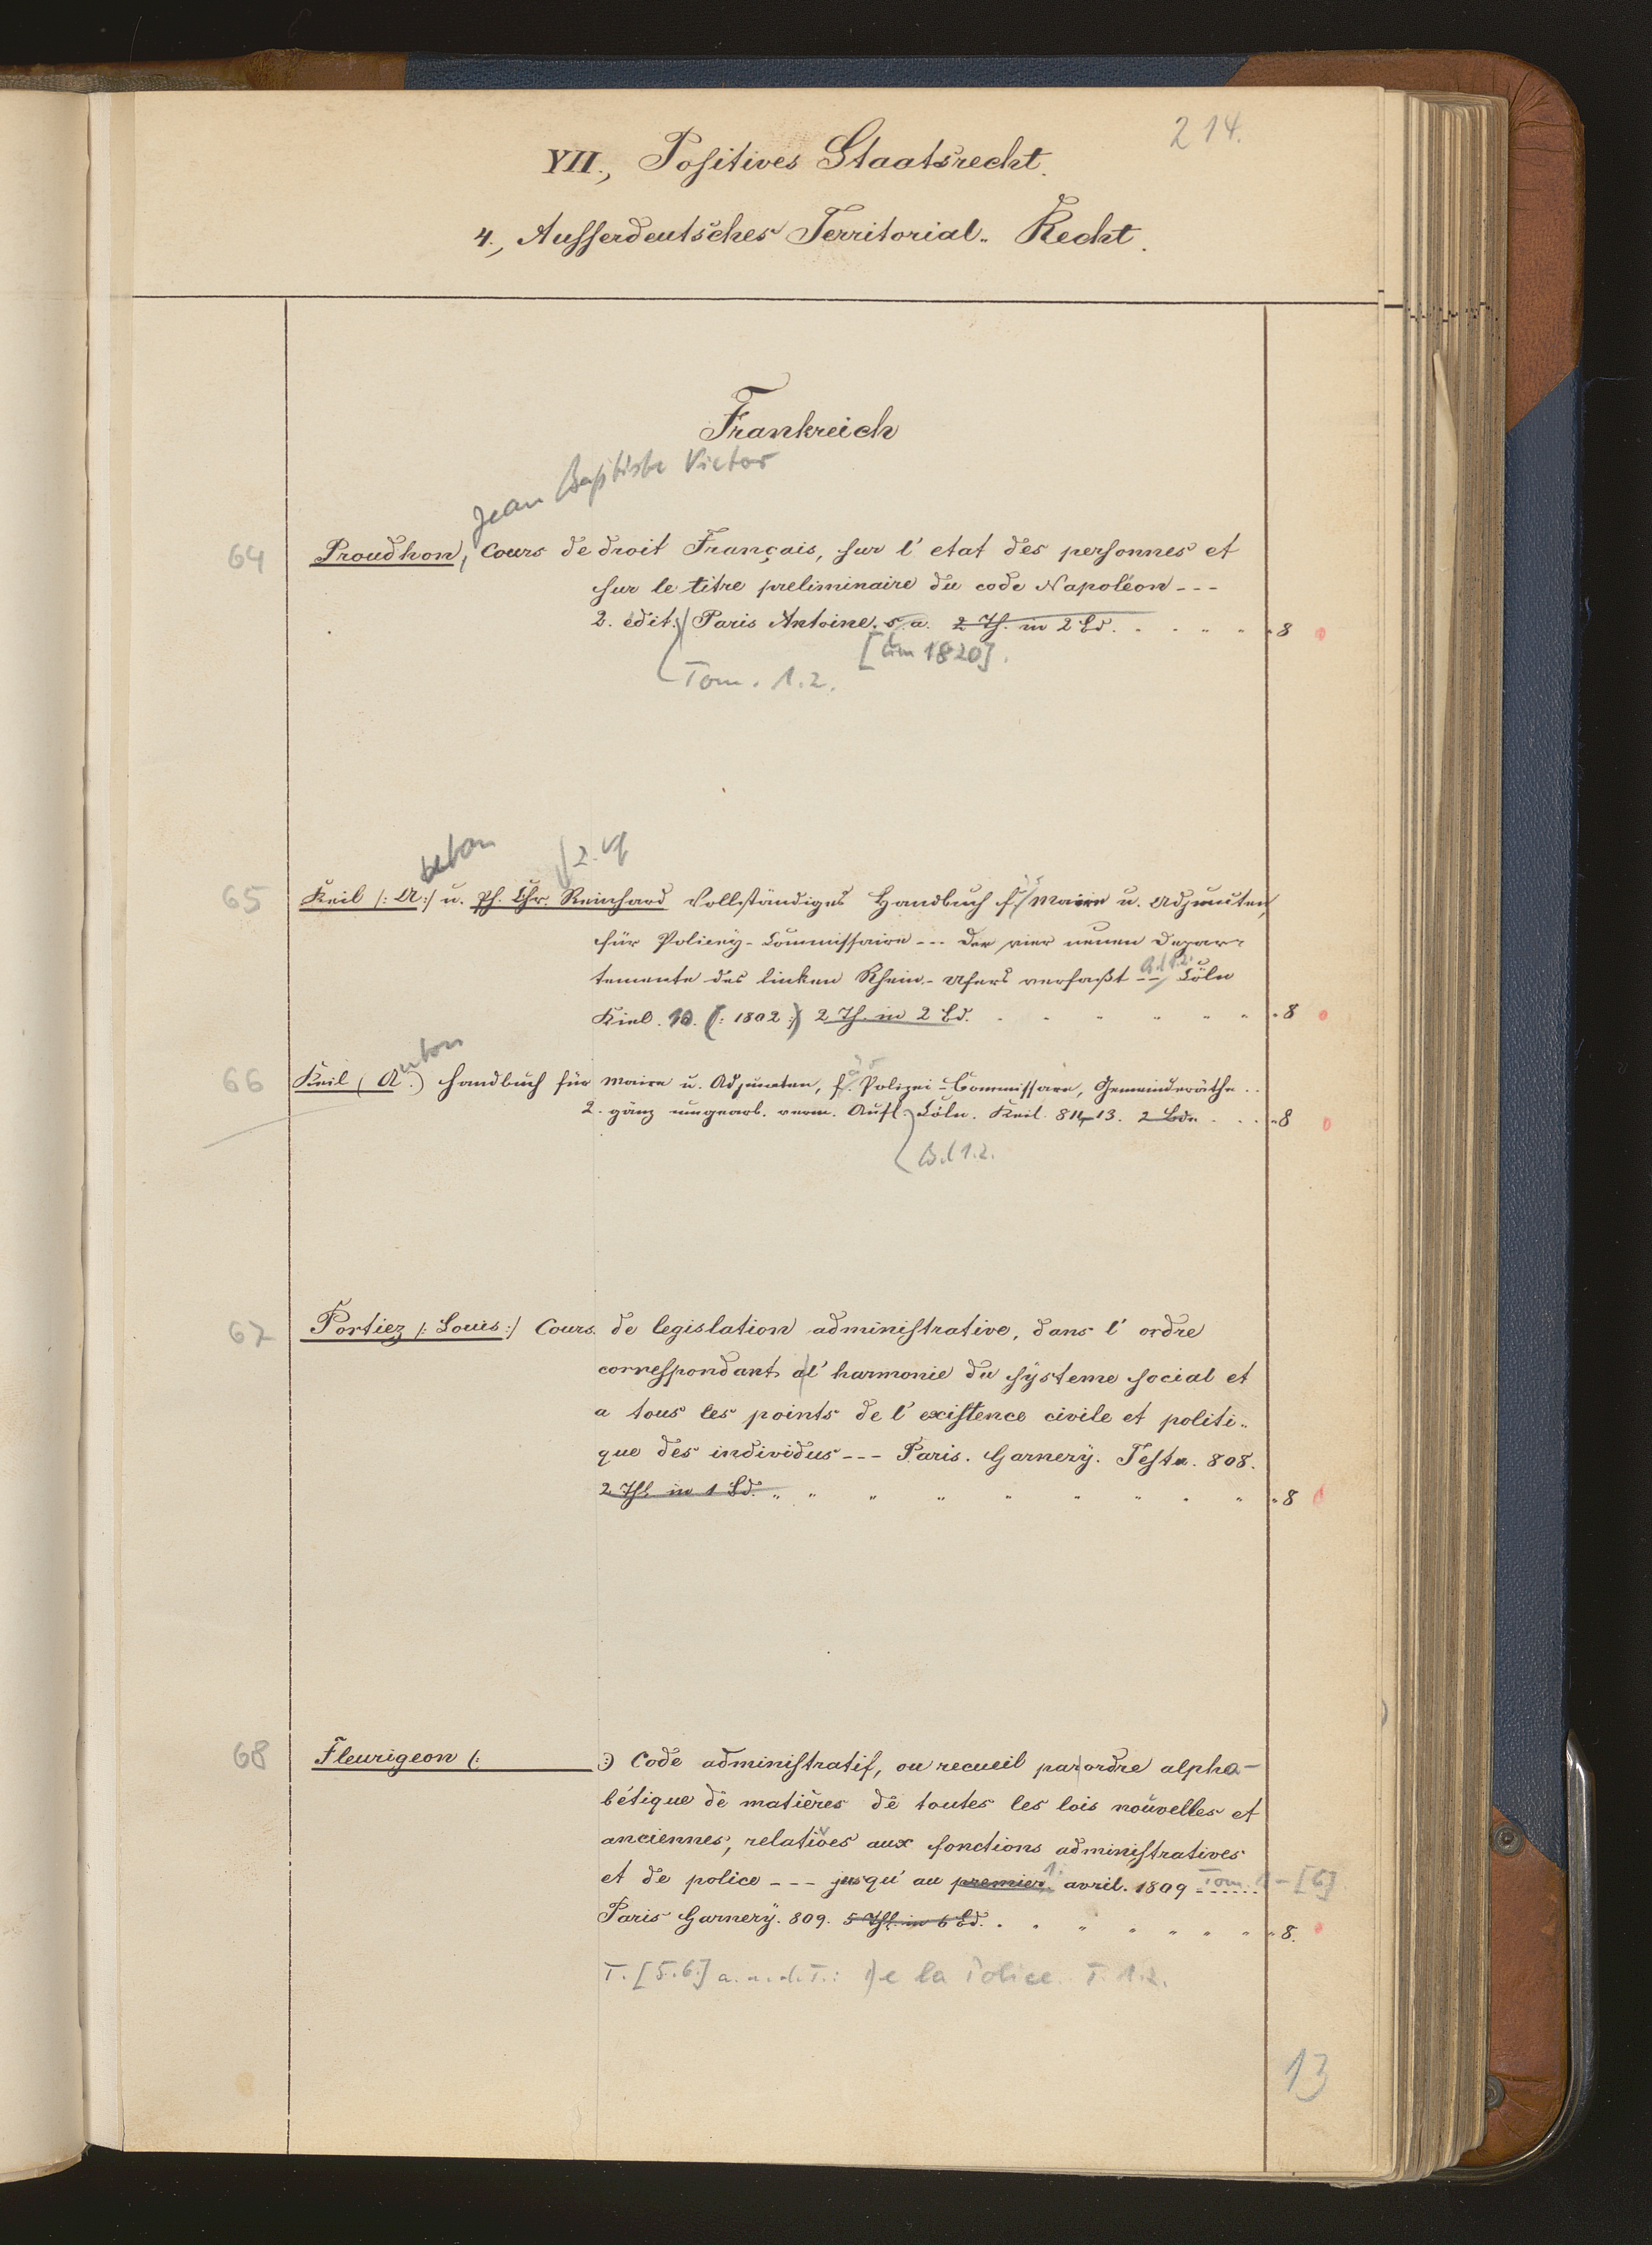 214.
VII., Positives Staatsrecht.
4., Ausserdeutsches Territorial- Recht.
Frankreich
Jean Baptiste Victor
64 Proudhon, Cours de droit Français, sur l' etat des personnes et
sur le titre preliminaire du code Napoléon ---
2. edit. Paris Antoine. s. a. 2 Th. in 2 Bd. 8
[um 1820].
Tom. 1.2.
65 Keil (: A :) u. Ph. Chr. Reinhard Vollständiges Handbuch f. Maire u. Adjuncten,
für Policey-Commissaire --- der vier neuen Depar-
temente des linken Rhein-Ufers verfaßt -- Bd 1.2. Cöln
Keil. 10. (: 1802 :) 2 Th. in 2 Bd. 8
66 Keil (Anton) Handbuch für Maire u. Adjuncten, f. Polizei-Commissare, Gemeinderäthe ..
2. gänz umgearb. verm. Aufl. Cöln. Keil. 811-13. 2 Bde. 8
Bd 1.2.
67 Portiez (: Louis :) Cours de legislation administrative, dans l' ordre
correspondant a l' harmonie du systeme social et
a tous les points de l' existence civile et politi-
que des individus --- Paris. Garnery. Testu. 808.
2 Thl. in 1 Bd. 8
68 Fleurigeon (: :) Code administratif, ou recueil par ordre alpha-
bétique de matières de toutes les lois nouvelles et
anciennes, relatives aux fonctions administratives
et de police --- jusqu' au premier 1. avril. 1809 Tom. 1-[6]
Paris Garnery. 809. 5 Thl. in 6 Bd. 8.
T. [5.6.] a. u. d. T.: De la Police. T. 1.2.
13